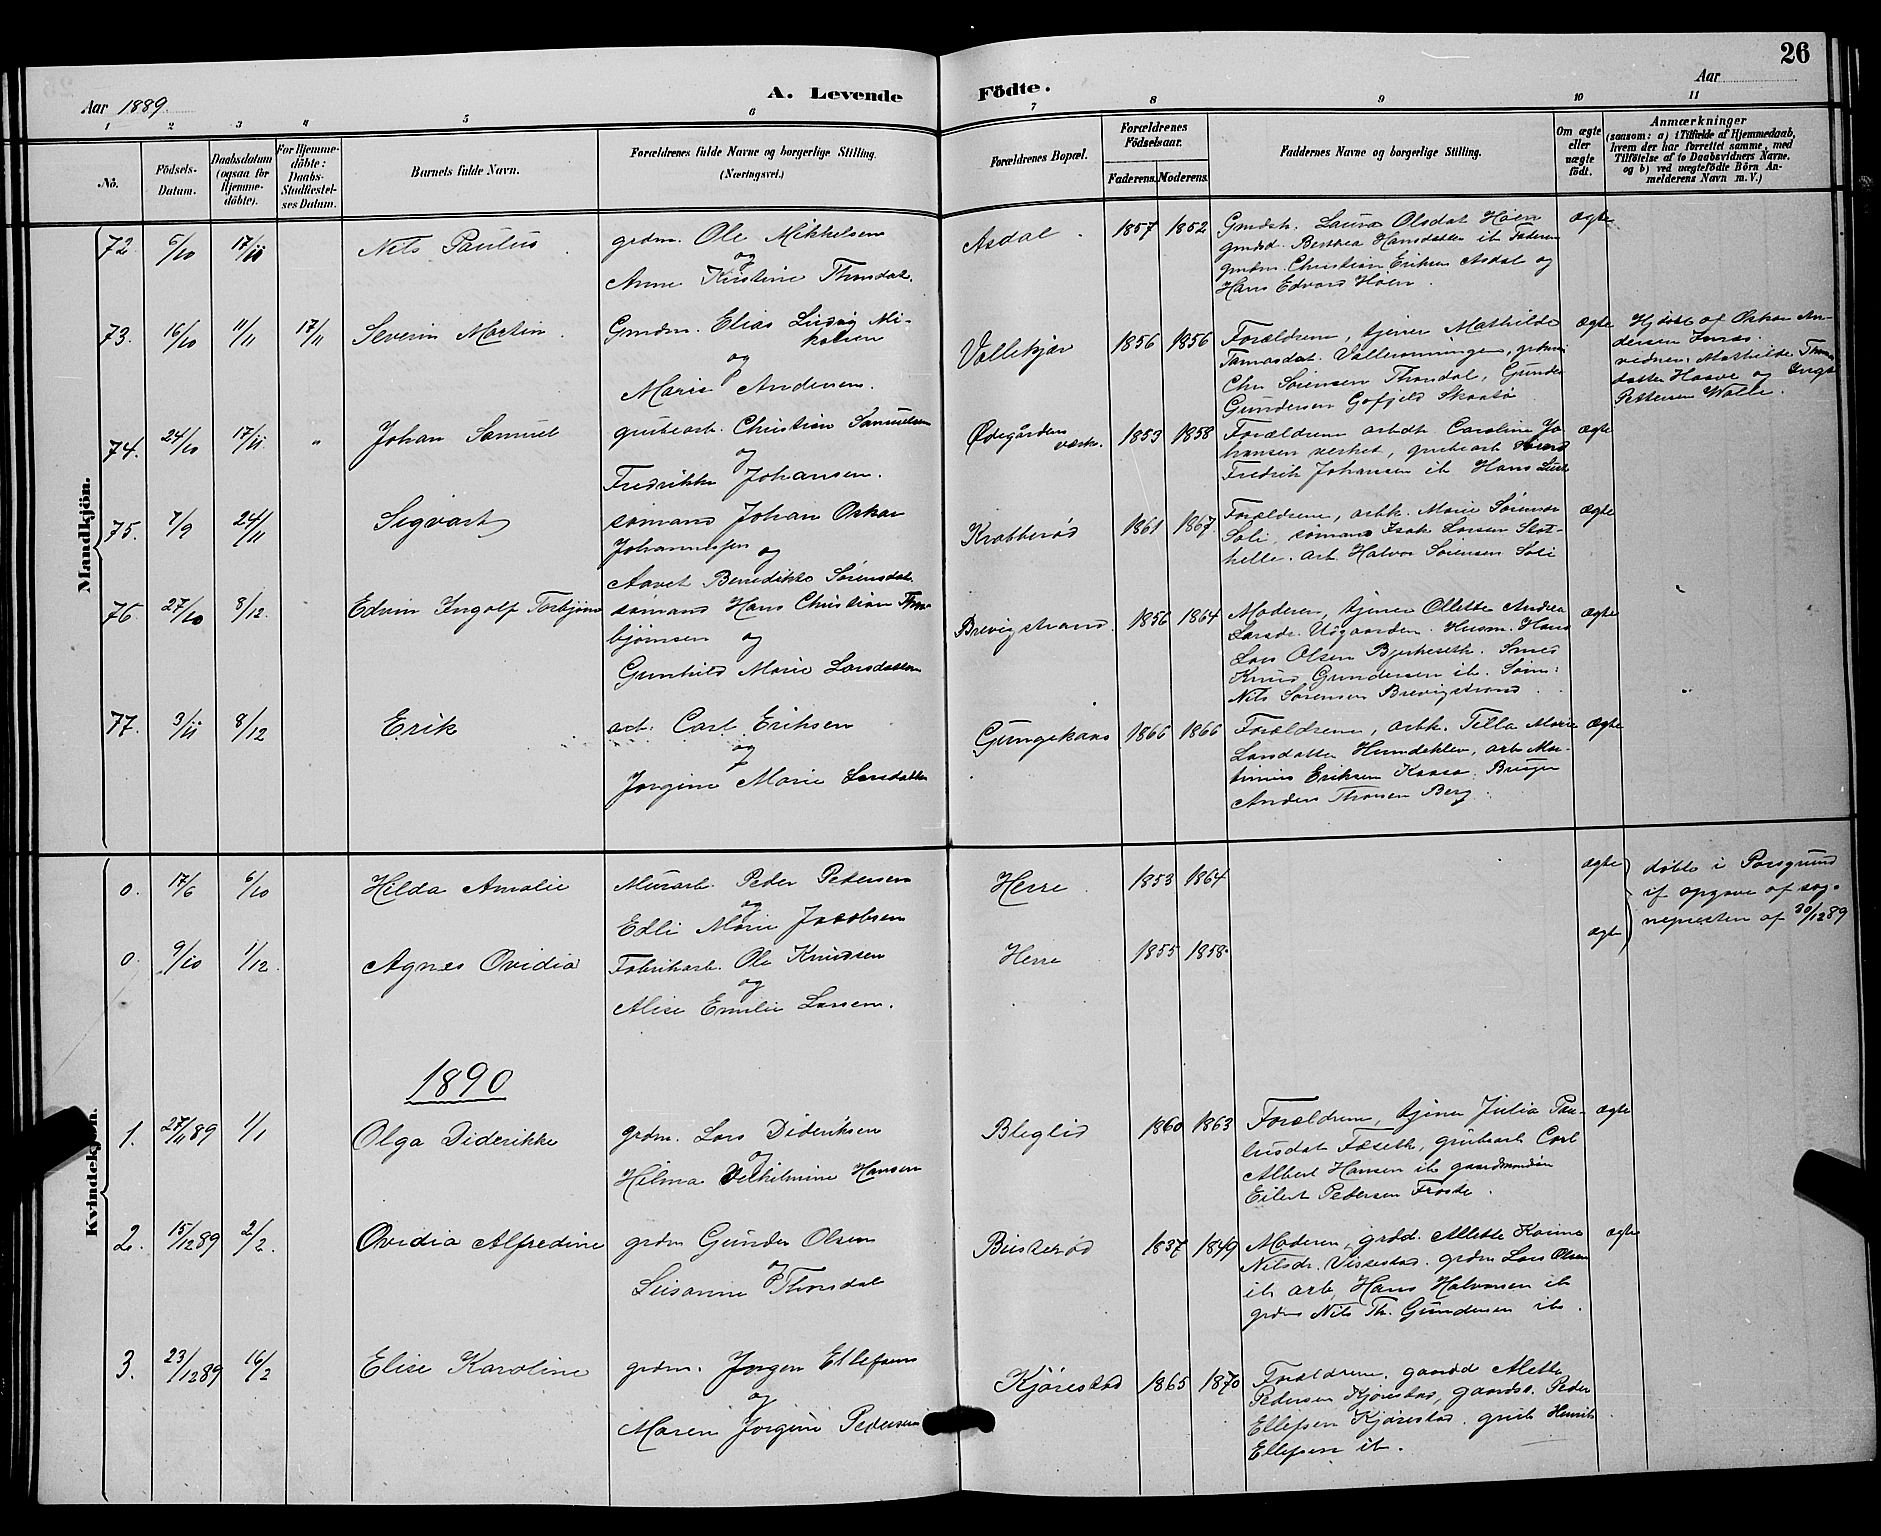 26
Aar 1889.
A. Levende Födte.
Aar
1 2 3 4 5 6 7 8 9 10 11
Nò.
Födsels-
Datum.
Daabsdatum
(ogsaa for
Hjemme-
döbte).
For Hjemme-
döbte:
Daabs-
Stadfæstel-
ses Datum.
Barnets fulde Navn.
Forældrenes fulde Navne og borgerlige Stilling.
(Næringsvei.)
Forældrenes Bopæl.
Forældrenes
Födselsaar.
Faderens. Moderens.
Faddernes Navne og borgerlige Stilling.
Om ægte
eller
uægte
födt.
Anmærkninger
(saasom: a) i Tilfælde af Hjemmedaab,
hvem der har forrettet samme, med
Tilföielse af to Daabsvidners Navne.
og b) ved uægtefödte Börn An-
melderens Navn m. V.)
Mandkjön.
72. 5/10 17/11 Nils Paulus grdm. Ole Mikkelsen
og
Anne Kirstine Thorsdat.
Asdal 1857 1852
Gmdsk. Laura Olsdat Høen
gmdsd. Berthea Hansdatter ib Faderen
gmdm. Christian Eriksen Asdal og
Hans Edvard Høen.
ægte
73. 16/10 11/11 17/11 Severin Martin Gmdm. Elias Ludvig Mi-
kalsen
og
Marie Andersen.
Vallekjær 1856 1856
Forældrene, tjener Mathilde
Tomasdat.
Chr Sørensen Thorsdal, Gunder
Gundersen Gofjeld Skaatø
ægte
Hjdøbt af Oskar An-
dersen
vidner: Mathilde Thoms
datter Haave og Inga
Pettersen Walle.
74. 24/10 17/11 " Johan Samuel grubearb. Christian Samuelsen
og
Fredrikke Johansen.
Ødegårdens
værk. 1853 1858
Forældrene arbdt Caroline Jo
hansen verket, grubearb
Fredrik Johansen ib Hans
ægte
75. 7/9 24/11 Sigvart sømand Johan Oskar
Johannessen og
Aavet Benedikte Sørensdat.
Krabberød 1861 1867.
Forældrene, arbk. Marie Sørensen
Soli, sømand Isak Larsen Stat-
helle. arb. Halvor Sørensen Soli
ægte
76. 27/10 8/12. Edvin Ingolf Torbjørn sømand Hans Christian Thor
bjørnsen og
Gunhild Marie Larsdatter
Brevigstrand. 1856 1864
Moderen, tjener Ollette Andrea
Larsdr. Uegaarden. Husm. Hans
Lars Olsen Bjerkeseth. Smed
Knud Gundersen ib. Søm:
Nils Sørensen Brevigstrand.
ægte
77. 3/11 8/12 Erik arb. Carl Eriksen
og
Jørgine Marie Larsdatter
Gungekaas 1866 1866
Forældrene, arbk. Tilla Marie
Larsdatter Hundeklev, arb Mar-
tinius Eriksen Kaasa. Bruger
Anders Thorsen Berg.
ægte
Kvindekjön.
0. 17/6 6/10 Hilda Amalie Murarb. Peder Pedersen
og
Edli Marie Jacobsen
Herre 1853 1864
ægte
døbte i Porsgrund
if opgave af sog-
nepresten af 30/12 89
0. 9/10 1/12. Agnes Ovidia Fabrikarb. Ole Knudsen
og
Alise Emilie Larsen.
Herre 1855 1858.
ægte
1890
1. 27/11 89 1/1 Olga Diderikke grdm. Lars Dideriksen
og
Hilma Vilhilmine Hansen
Bleglid 1860 1863
Forældrene, tjener Julia Pau-
lusdat Fæseth, grubearb Carl
Albert Hansen ib gaardmandsøn
Eilert Pedersen Froste.
ægte
2. 15/12 89 2/2. Ovidia Alfredine grdm Gunder Olsen
og
Susanne Thorsdal
Busterød 1837 1849
Moderen, grdd. Allette Karine
Nilsdr. Vissestad. grdm Lars Olsen
ib arb, Hans Halvorsen ib
grdm Nils Th. Gundersen ib.
ægte
3. 23/12 89 16/2 Elise Karoline grdm. Jørgen Ellefsen
og
Maren Jørgine Pedersen
Kjørestad 1865 1870
Forældrene, gaardd Alette
Pedersen Kjørestad, gaards. Peder
Ellefsen Kjørestad. grub Henrik
Ellefsen ib.